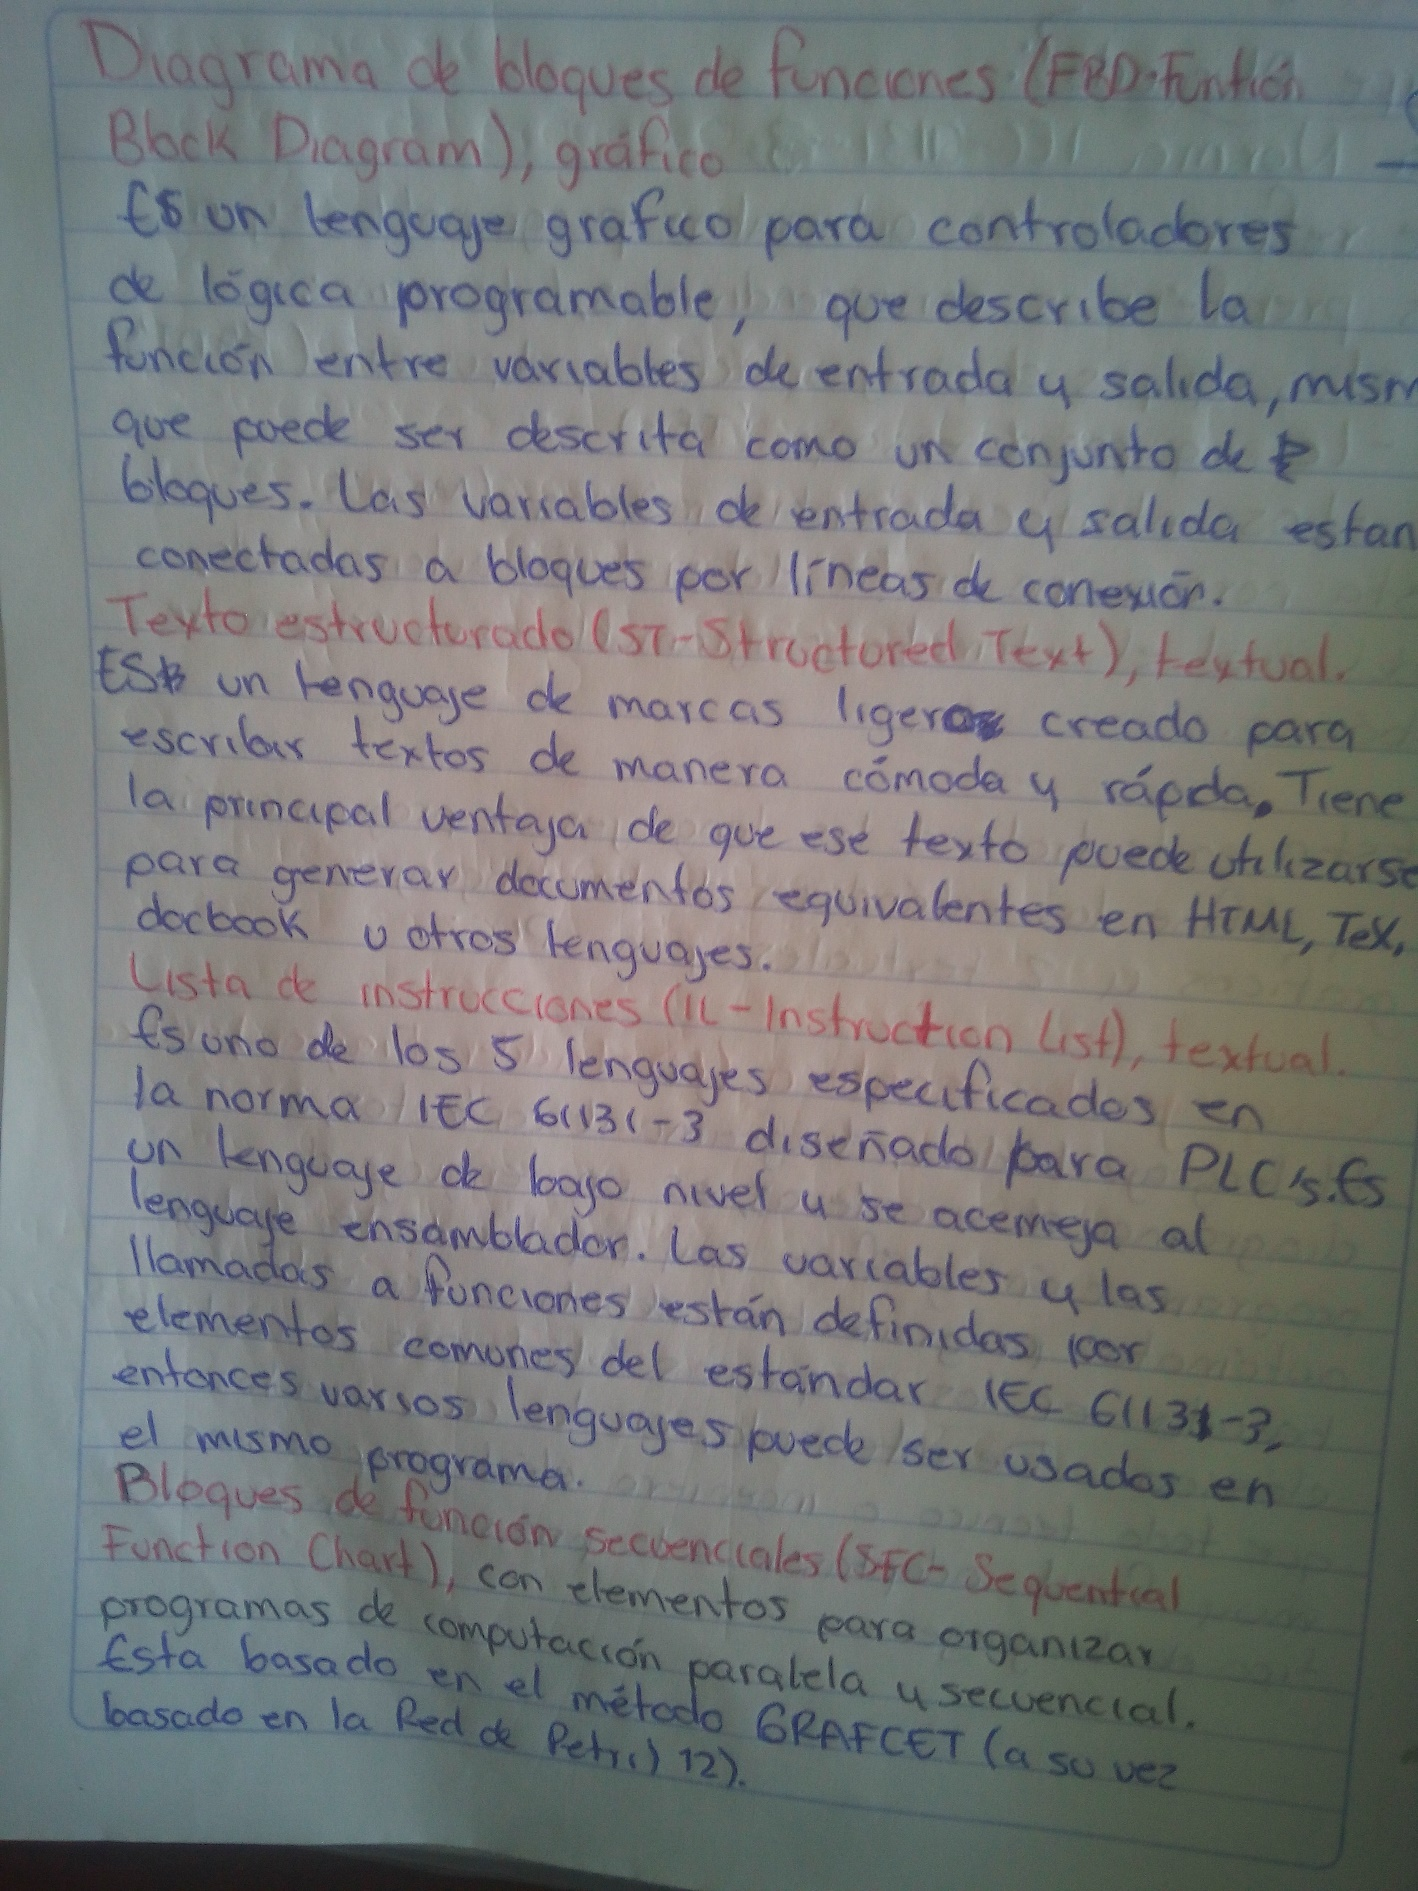 Diagrama de bloques de funciones (FBD-Funtion
Block Diagram), gráfico
Es un lenguaje grafico para controladores
de lógica programable, que describe la
función entre variables de entrada y salida, mism
que puede ser descrita como un conjunto de
bloques. Las variables de entrada y salida estan
conectadas a bloques por líneas de conexión.
Texto estructurado (ST-Structured Text), textual.
ES un lenguaje de marcas ligero creado para
escribir textos de manera cómoda y rápida. Tiene
la principal ventaja de que ese texto puede utilizarse
para generar documentos equivalentes en HTML, TeX,
docbook u otros lenguajes.
Lista de instrucciones (IL-Instruction List), textual.
Es uno de los 5 lenguajes especificados en
la norma IEC 61131-3 diseñado para PLC's. Es
un lenguaje de bajo nivel y se acemeja al
lenguaje ensamblador. Las variables y las
llamadas a funciones están definidas por
elementos comunes del estándar IEC 61131-3,
entonces varios lenguajes puede ser usados en
el mismo programa.
Bloques de función secuenciales (SFC- Sequential
Function Chart), con elementos para organizar
programas de computación paralela y secuencial.
Esta basado en el método GRAFCET (a su vez
basado en la Red de Petri) 12).